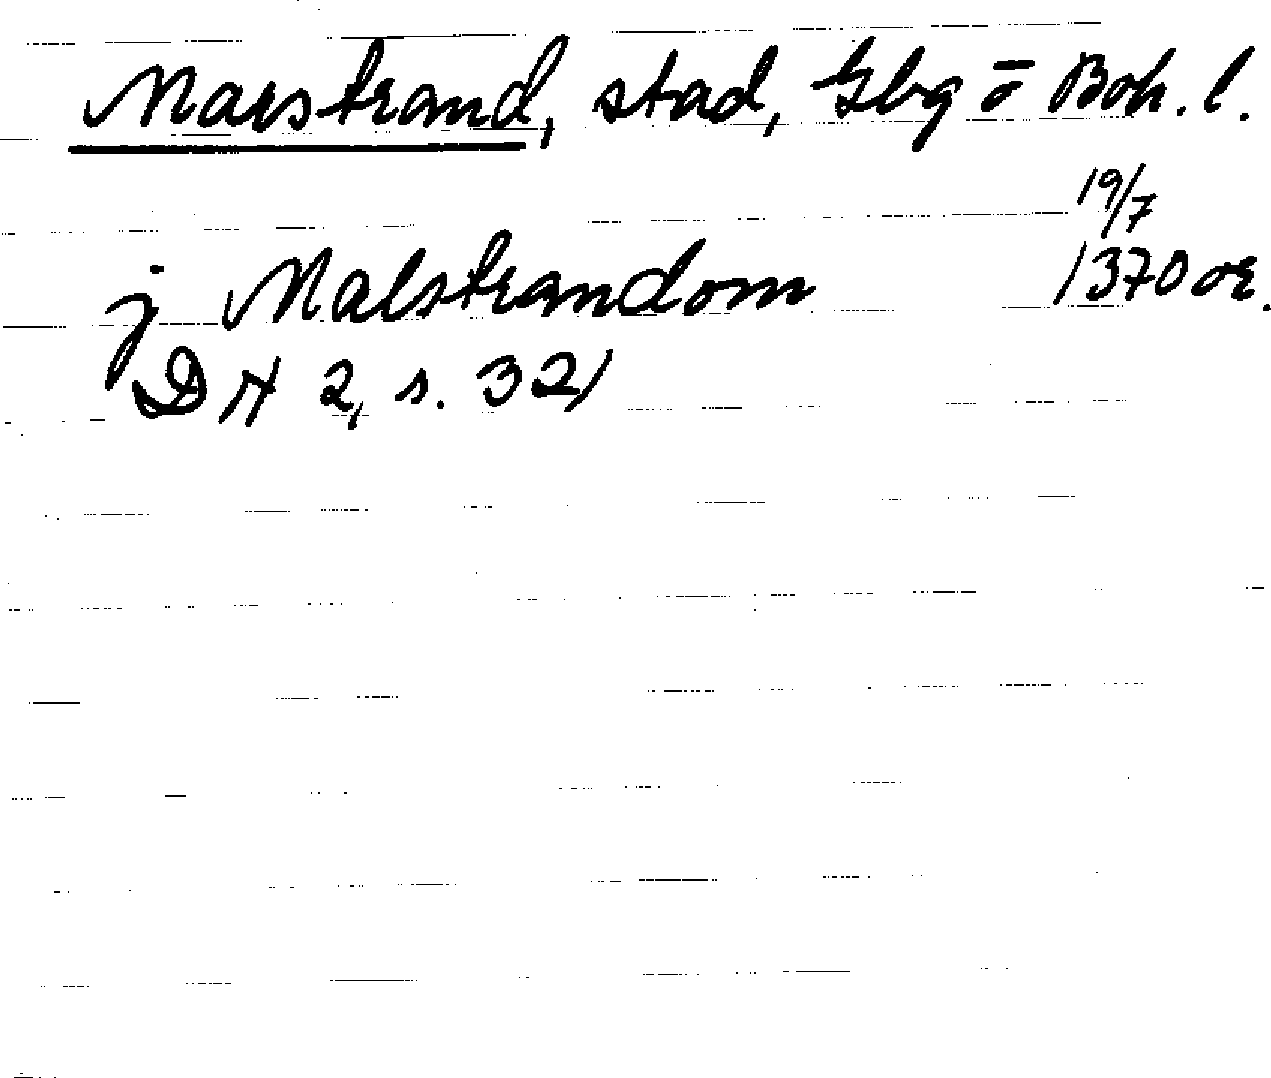 Marstrand, stad, Gbg ō Boh. l.
19/7
j Malstrandom 1370 or.
DN 2, s. 321